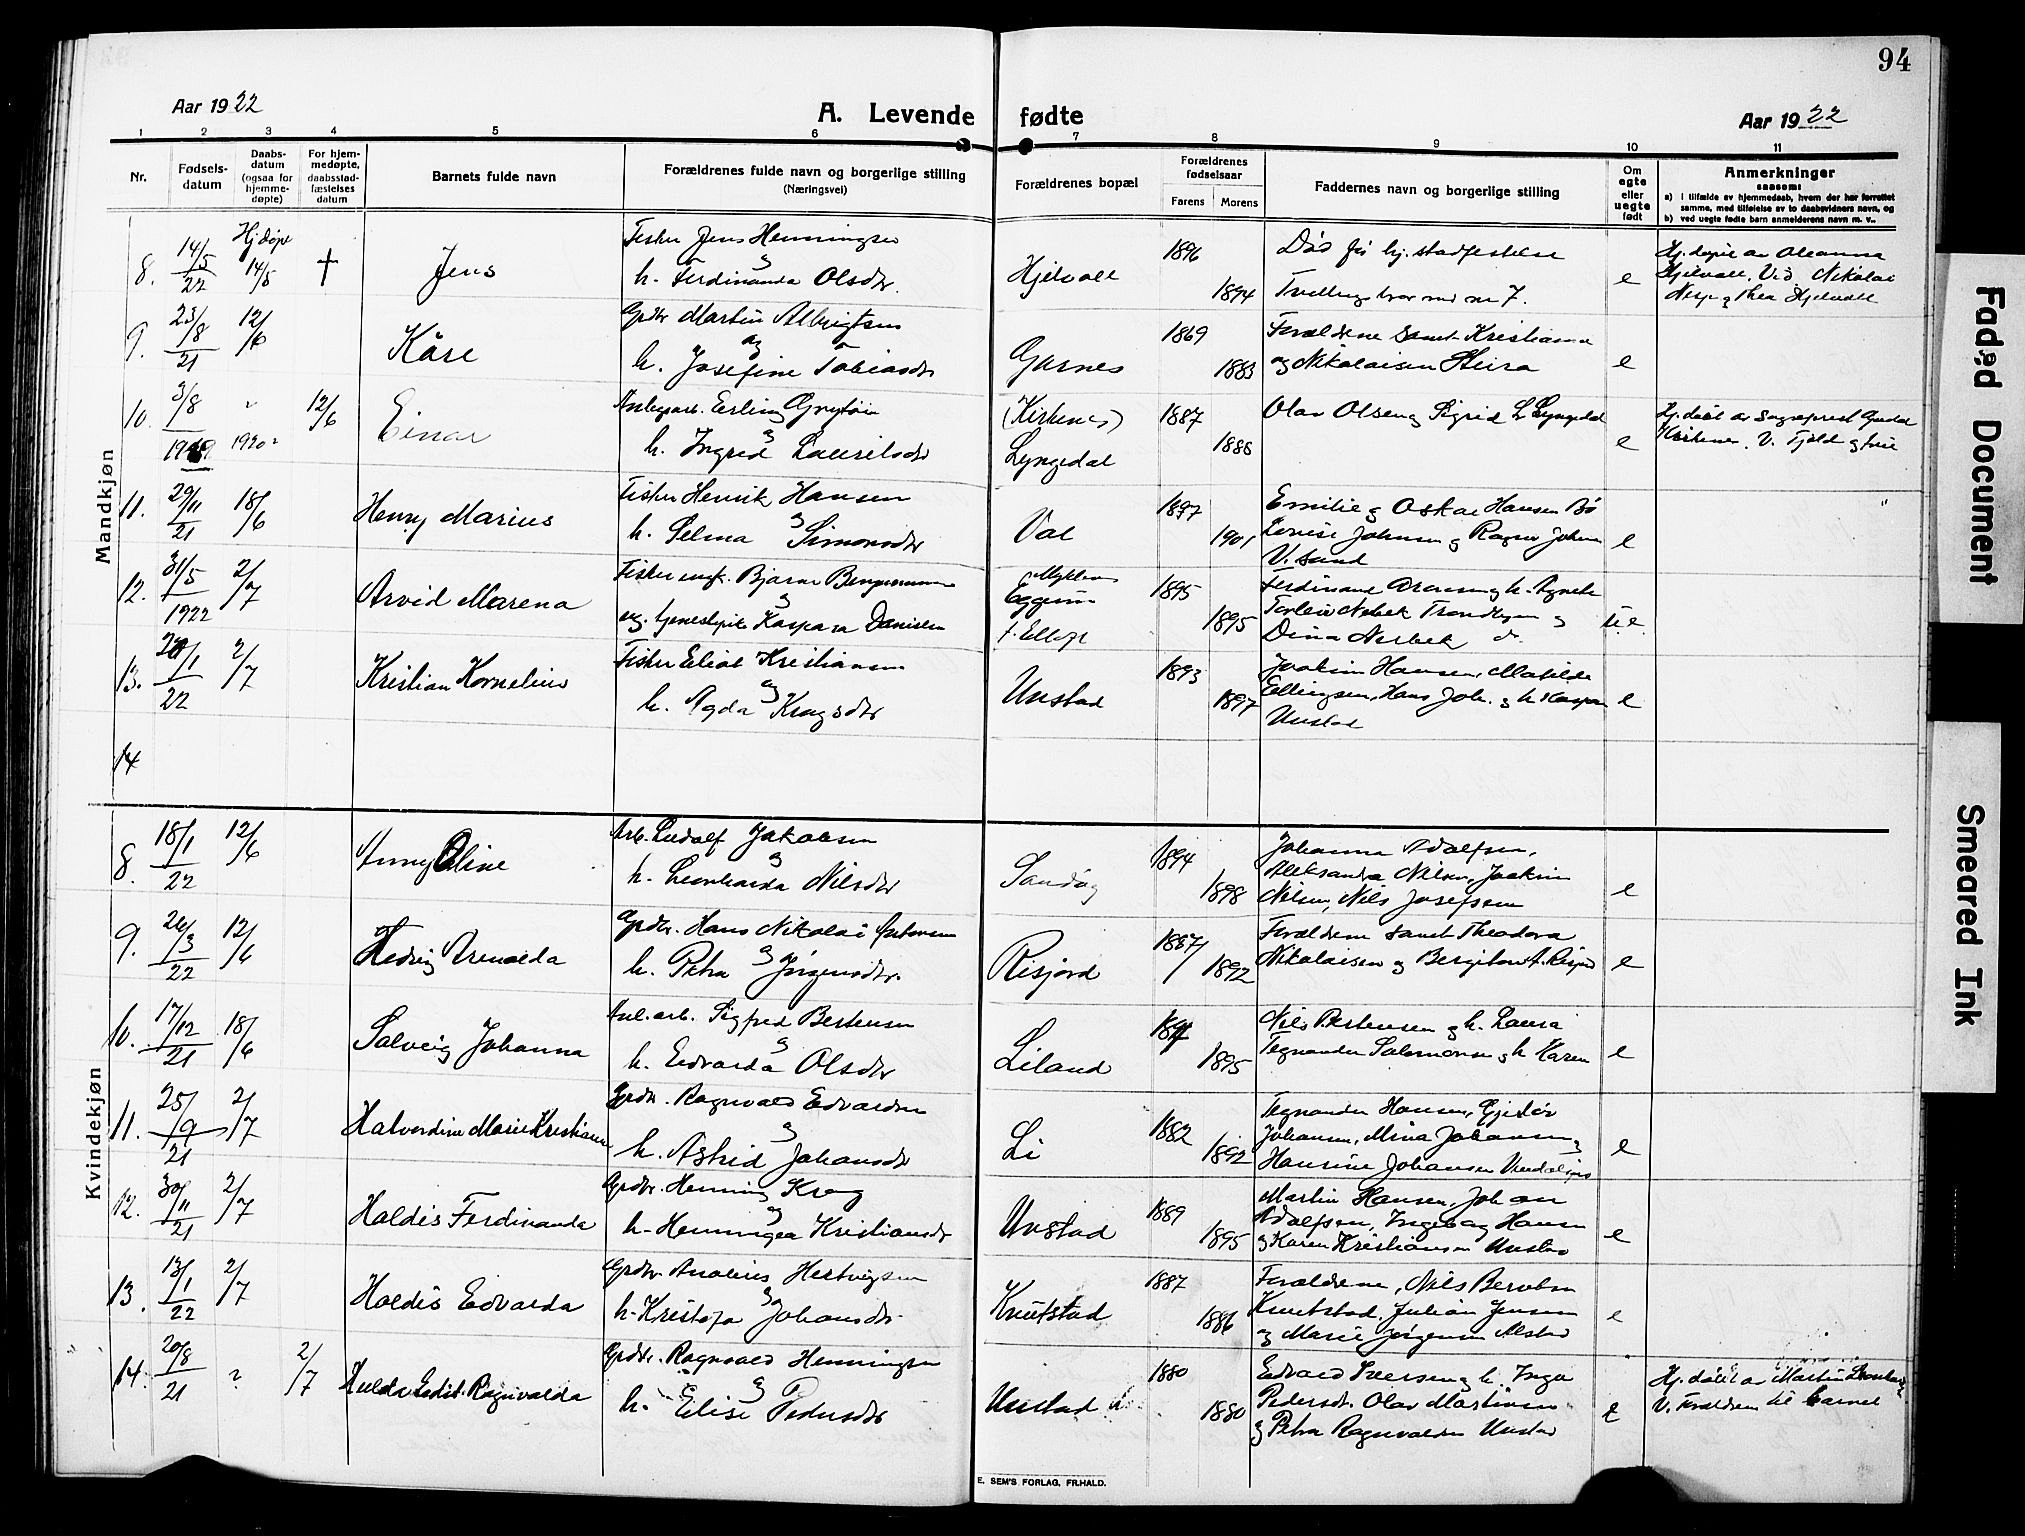 94
Aar 1922
A. Levende fødte
Aar 1922
1 2 3 4 5 6 7 8 9 10 11
Nr.
Fødsels-
datum
Daabs-
datum
(ogsaa for
hjemme-
døpte)
For hjem-
medøpte,
daabsstad-
fæstelses
datum
Barnets fulde navn
Forældrenes fulde navn og borgerlige stilling
(Næringsvei)
Forældrenes bopæl
Forældrenes
fødselsaar
Farens Morens
Faddernes navn og borgerlige stilling
Om
egte
eller
uegte
født
Anmerkninger
saasom:
a) i tilfælde av hjemmedaab, hvem der har forrettet
samme, med tilføielse av to daabsvidners navn, og
b) ved uegte fødte barn anmelderens navn m. v..
Mandkjøn
8. 14/5 22 Hjdøpt 14/5 † Jens
Fisker Jens Henningsen
og
h. Ferdinanda Olsdtr.
Hjelvoll 1896 1894
Død før hj. stadfestelse
Tvillingbror med no 7.
e
Hj. døpt av Oleanna
Hjelvoll. Vid. Nikolai
Hesp og Thea Hjelvoll
9. 23/8 21 12/6 Kåre
Grdbr Martin Albrigtsen
og
h. Josefine Tobiasdtr
Garnes 1869 1883
Forældrene samt Kristianna
og Nikolaisen Steira
e
10. 3/8 12/6 Einar
1920
Anlegsarb. Erling Grytøir
og
h. Ingrid Lauritsdtr
(Kirkenes)
Lyngedal
1887 1888
Olav Olsen og Sigrid L Lyngedal
e
Hj. døbt av Sogneprest
Kirkenes. V. Fjeld og frue
11. 29/11 21 18/6 Henry Marius
Fisker Henrik Hansen
og
h. Selma Simonsdtr
Val 1897 1901
Emilie og Oskar Hansen Bø
Lovise Johnsen og Ragnv Johnsen
V. Sand
e
12. 31/5 1922 2/7 Arvid Marena
Fisker ungk. Bjarne Benjaminsen
og
ug. tjenestepike Kaspara Danielsen
Myklem
Eggum
1895 1895
Ferdinand Aronsen og h. Agnete
Torleiv Nesbek Trondhjem og
Dina Nesbek do.
u.e.
13. 20/1 22 2/7 Kristian Kornelius
Fisker Eliot Kristiansen
og
h. Agda Kragsdtr
Unstad 1893 1897
Joakim Hansen, Matilde
Ellingsen, Hans Joh. og h Kaspara
Unstad
e
14
Kvindekjøn
8. 18/1 22 12/6 Anny Oline
Arb. Ludolf Jakobsen
og
h. Leonharda Nilsdtr
Sandøg 1894 1898
Johanna Adolfsen,
Aleksandra Nilsen, Joakim
Nilsen, Nils Josefsen
e
9. 26/3 22 12/6 Hedvig Arnolda
Grdbr. Hans Nikolai Antonsen
og
h. Petra Jørgensdtr.
Risjord 1887 1892
Forældrene samt Theodora
Nikolaisen og Bergiton A. Risjord
e
10. 17/12 21 18/6 Solveig Johanna
Anl. arb. Sigfred Bertensen
og
h. Edvarda Olsdtr
Liland 1895
Nils Bertensen og h. Laura
Tegnander Salomonsen og h Karen
e
11. 25/9 21 2/7 Halvordine Marie Kristianne
Grdbr. Ragnvald Edvardsen
og
h. Astrid Johansdtr
Li 1882 1892
Tegnander Hansen, Gjertor
Johansen, Mina Johansen og
Hansine Johansen Vendalsjord
e
12. 30/11 21 2/7 Haldis Ferdinanda
Grdbr. Henning Krog
og
h. Henningea Kristiansdtr
Unstad 1889 1895
Martin Hansen, Johan
Adolfsen, Ingeborg Hansen
og Karen Kristiansen Unstad
e
13. 13/1 22 2/7 Haldis Edvarda
Grdbr Analius Hertvigsen
og
h. Kristofa Johansdtr
Knutstad 1887 1886
Forældrene, Nils Berntsen
Knutstad, Julian Jensen
og Marie Jørgensen Alstad
e
14. 20/8 21 ? 2/7 Hulda Eidit Ragnvalda
Grdbr. Ragnvald Henningsen
og
h. Elise Pedersdtr
Unstad 1880 1880
Edvard Iversen og h. Inga
Pedersdt. Olav Martinsen
og Petra Ragnvaldsen Unstad
e
Hj. døbt av Martin
V. Forældrene til barnet
E. SEM'S FORLAG, FR.HALD.
Faded Document
Smeared Ink